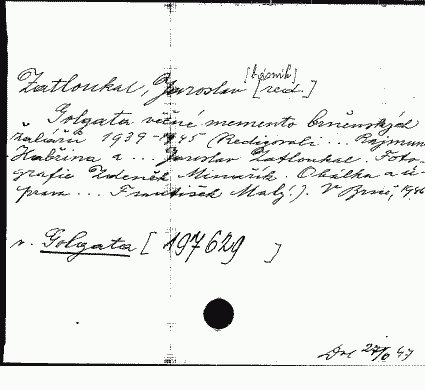 [básník]
Zatloukal, Jaroslav [red.]
Golgata věčné memento brněnských
žalářů 1939-1945 (Redigovali ... Rajmund
Habřina a ... Jaroslav Zatloukal. Foto-
grafie Zdeněk Minařík. Obálka a ú-
prava ... František Malý.). V Brně, 1946
v. Golgata [197629]
47